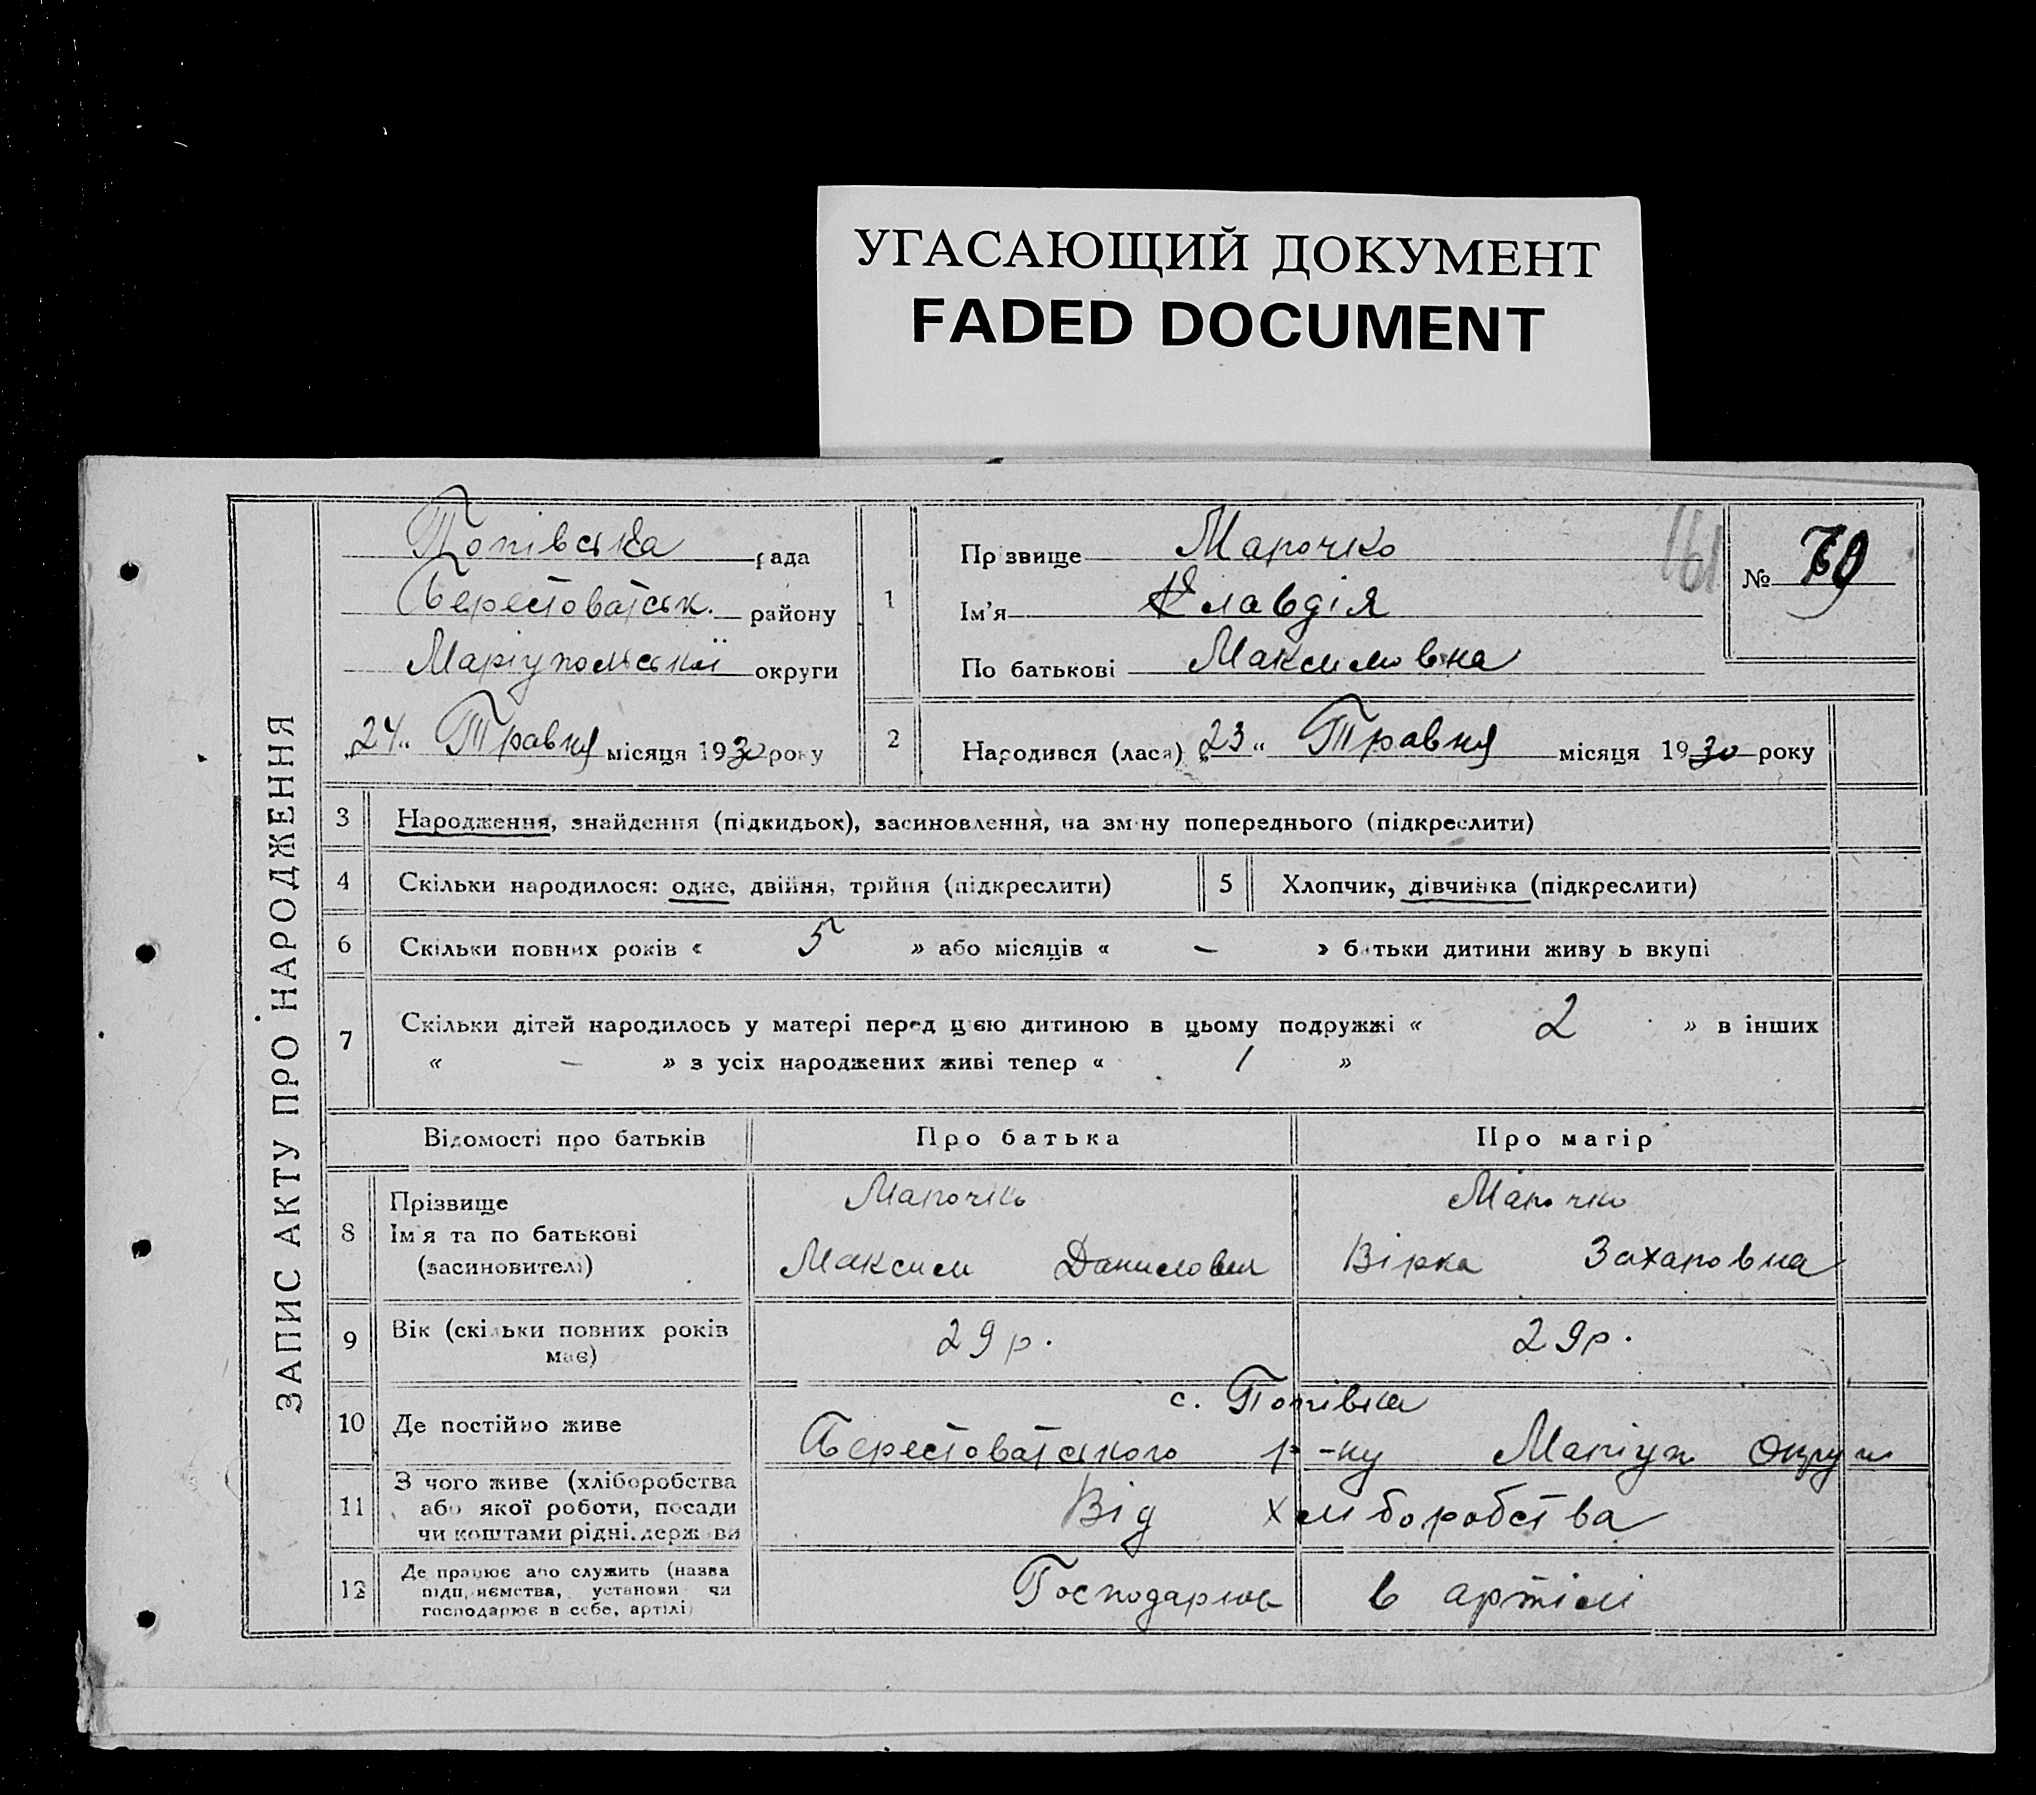 УГАСАЮЩИЙ ДОКУМЕНТ
FADED DOCUMENT
ЗАПИС АКТУ ПРО НАРОДЖЕННЯ
Попівська рада
Берестоватськ. району
Маріупольської округи
„24“ Травня місяця 1930 року
1
Прізвище Марочко
Ім’я Клавдія
По батькові Максимовна
161
№ 79
2 Народився (лася) „23“ Травня місяця 1930 року
3 Народження, знайдення (підкидьок), засиновлення, на зміну попереднього (підкреслити)
4 Скільки народилося: одне, двійня, трійня (підкреслити)
5 Хлопчик, дівчинка (підкреслити)
6 Скільки повних років « 5 » або місяців « – » батьки дитини живуть вкупі
7 Скільки дітей народилось у матері перед цією дитиною в цьому подружжі « 2 » в інших
« – » з усіх народжених живі тепер « 1 »
Відомості про батьків Про батька Про матір
8 Прізвище
Ім’я та по батькові
(засиновителі)
Марочко
Максим Данилович
Марочко
Вірка Захаровна
9 Вік (скільки повних років
має)
29 р. 29 р.
10 Де постійно живе
с. Попівка
Берестоватського р-ну Маріуп Округи
11 З чого живе (хліборобства
або якої роботи, посади
чи коштами рідні, держави
Від хліборобства
12 Де працює або служить (назва
підприємства, установи чи
господарює в себе, артілі)
Господарює в артілі